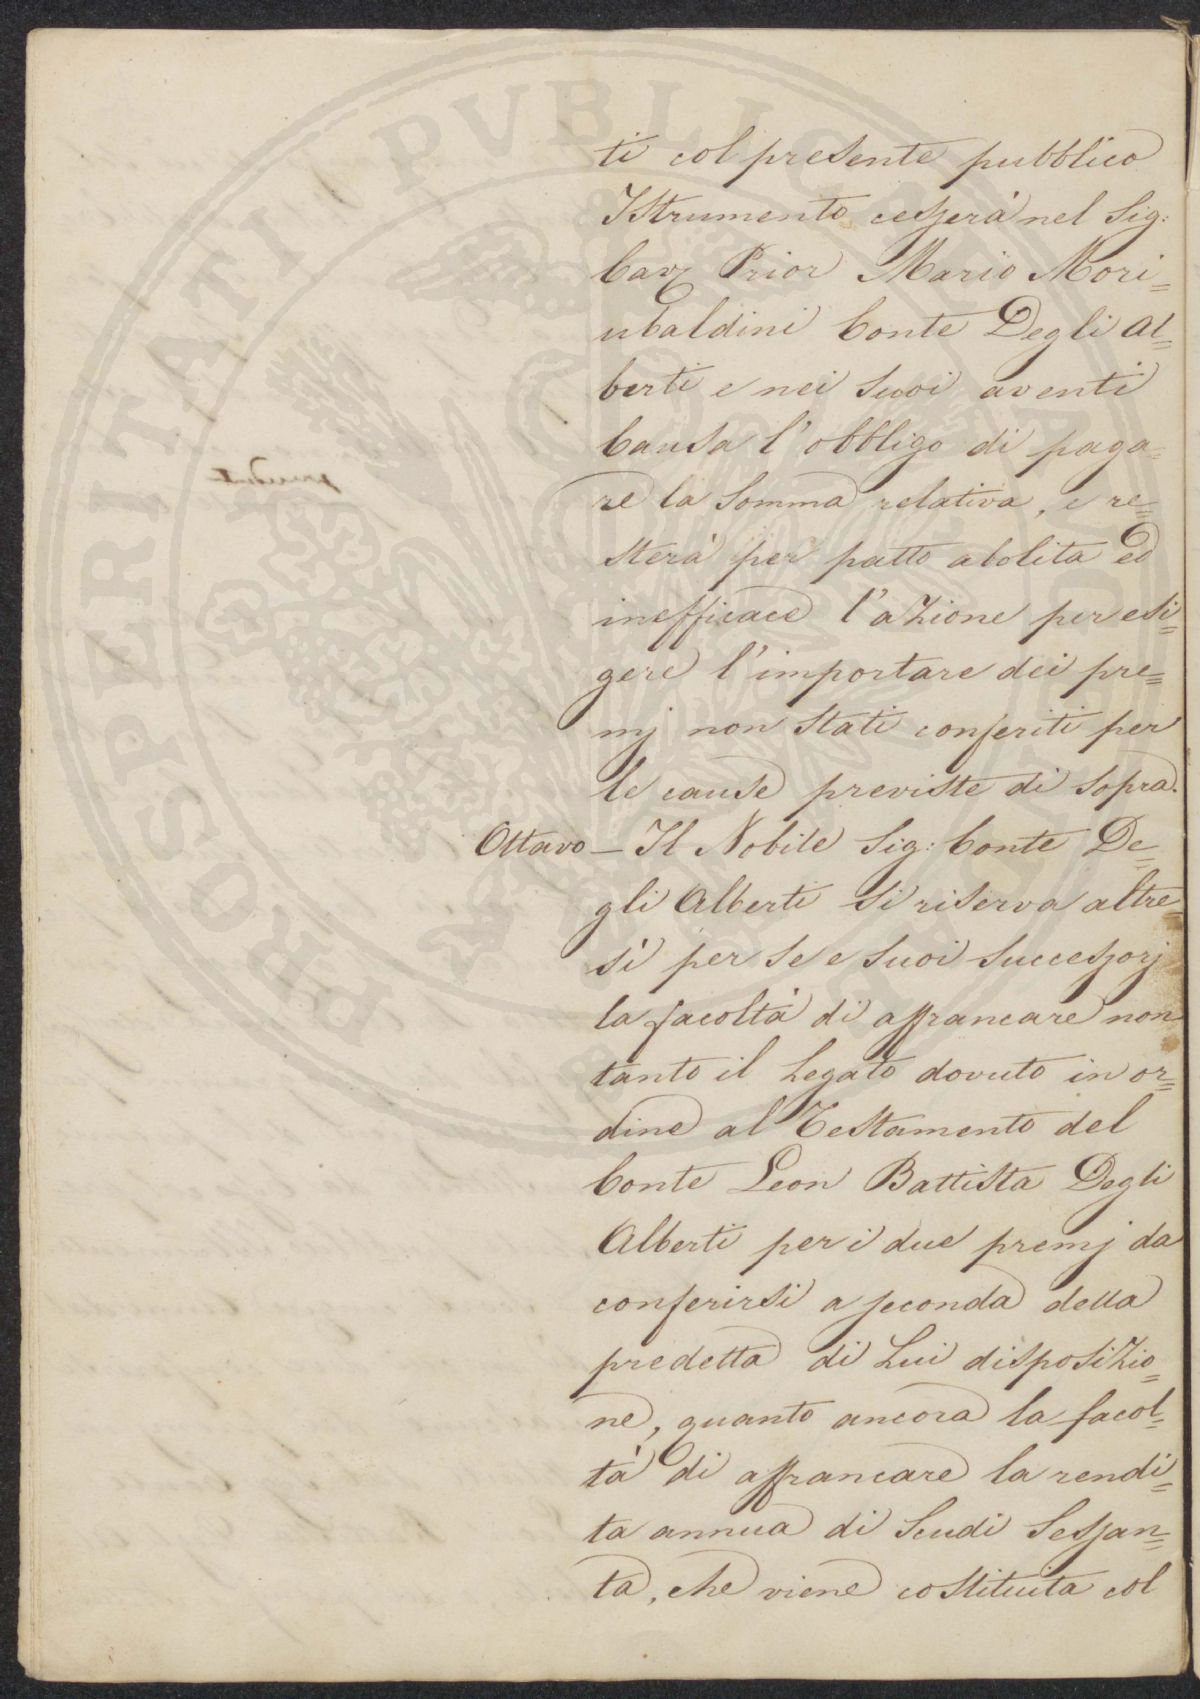 PROSPERITATI PVBLICAE
ti col presente pubblico
Istrumento cesserà nel Sig:
Cav. Prior Mario Mori=
ubaldini Conte Degli Al=
berti e nei suoi aventi
Causa l'obbligo di paga=
re la Somma relativa, e re=
sterà per patto abolita ed
inefficace l'azione per esi=
gere l'importare dei pre=
mj non stati conferiti per
le cause previste di sopra.
Ottavo – Il Nobile Sig: Conte De=
gli Alberti si riserva altre=
sì per se e suoi successorj
la facoltà di affrancare non
tanto il Legato dovuto in or=
dine al Testamento del
Conte Leon Battista Degli
Alberti per i due premj da
conferirsi a seconda della
predetta di Lui disposizio=
ne, quanto ancora la facol=
tà di affrancare la rendi=
ta annua di Scudi Sessan=
ta, che viene costituita col